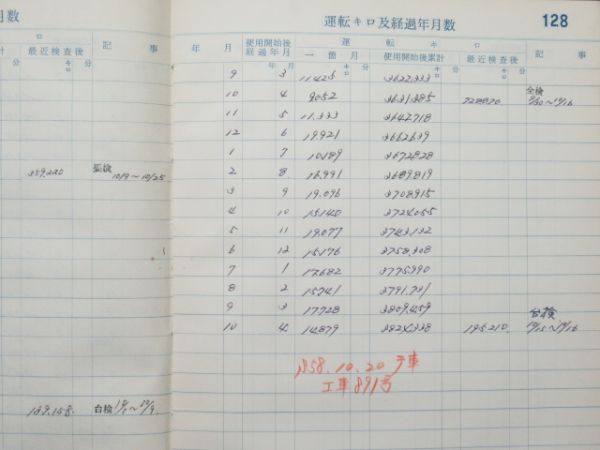 月数
ロ
計 最近検査後 記 事
分 キロ 分
359,220 張検 10/9~10/25
159,158 台検
運転キロ及経過年月数 128
年 月 使用開始後経過年月 運転キロ 記事
一箇月 使用開始後累計 最近検査後
年 月 キロ 分 キロ 分 キロ 分
9 3 11,425 3622,333
10 4 9052 3631,385 728820 全検
11 5 11,333 3642,718
12 6 19,921 3662,639
1 7 10,189 3672,828
2 8 16,991 3689,819
3 9 19,096 3708,915
4 10 15,140 3724,055
5 11 19,077 3743,132
6 12 15,176 3758,308
7 1 17,682 3775,990
8 2 15,741 3791,731
9 3 17,728 3809,459
10 4 14,879 3824,338 195,210 台検
S58.10.20 廃車
工車891号